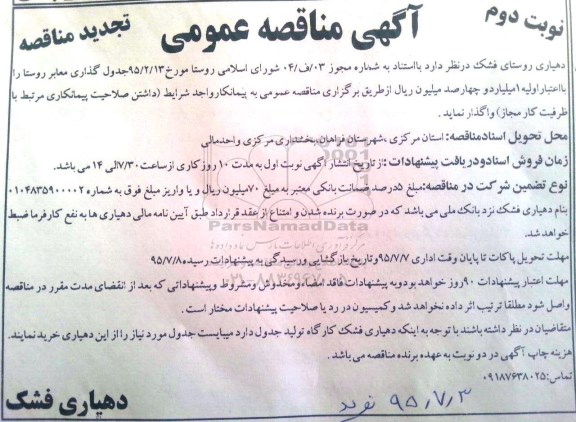 نوبت دوم
آگهی مناقصه عمومی
تجدید مناقصه
دهیاری روستای فشک درنظر دارد بااستناد به شماره مجوز ۰۳/ف/۰۴ شورای اسلامی روستا مورخ ۹۵/۲/۱۳جدول گذاری معابر روستا را
بااعتباراولیه ۱میلیاردو چهارصد میلیون ریال ازطریق برگزاری مناقصه عمومی به پیمانکارواجد شرایط (داشتن صلاحیت پیمانکاری مرتبط با
ظرفیت کار مجاز) واگذار نماید .
محل تحویل اسنادمناقصه: استان مرکزی ،شهرستان فراهان،بخشداری مرکزی واحدمالی
زمان فروش اسنادودریافت پیشنهادات :از تاریخ انتشار آگهی نوبت اول به مدت ۱۰ روز کاری از ساعت ۷/۳۰الی ۱۴ می باشد.
نوع تضمین شرکت در مناقصه:مبلغ ۵درصد ضمانت بانکی معتبر به مبلغ ۷۰میلیون ریال و یا واریز مبلغ فوق به شماره ۰۱۰۴۸۳۵۹۰۰۰۰۲
بنام دهیاری فشک نزد بانک ملی می باشد که در صورت برنده شدن و امتناع از عقد قرارداد طبق آیین نامه مالی دهیاری ها به نفع کارفرما ضبط
خواهد شد.
ParsNamadData
مهلت تحویل پاکات تا پایان وقت اداری ۹۵/۷/۷ وتاریخ بازگشایی ورسیدگی به پیشنهادات رسیده ۹۵/۷/۸
مهلت اعتبار پیشنهادات ۹۰روز خواهد بودوبه پیشنهادات فاقد امضاءومخدوش ومشروط وپیشنهاداتی که بعد از انقضای مدت مقرر در مناقصه
واصل شود مطلقا ترتیب اثر داده نخواهد شد و کمیسیون در رد یا صلاحیت پیشنهادات مختار است .
متقاضیان در نظر داشته باشند با توجه به اینکه دهیاری فشک کارگاه تولید جدول دارد میبایست جدول مورد نیاز را از این دهیاری خرید نمایند.
هزینه چاپ آگهی در دو نوبت به عهده برنده مناقصه می باشد .
تماس:۰۹۱۸۷۶۳۸۰۲۵
دهیاری فشک
۹۵/۷/۳